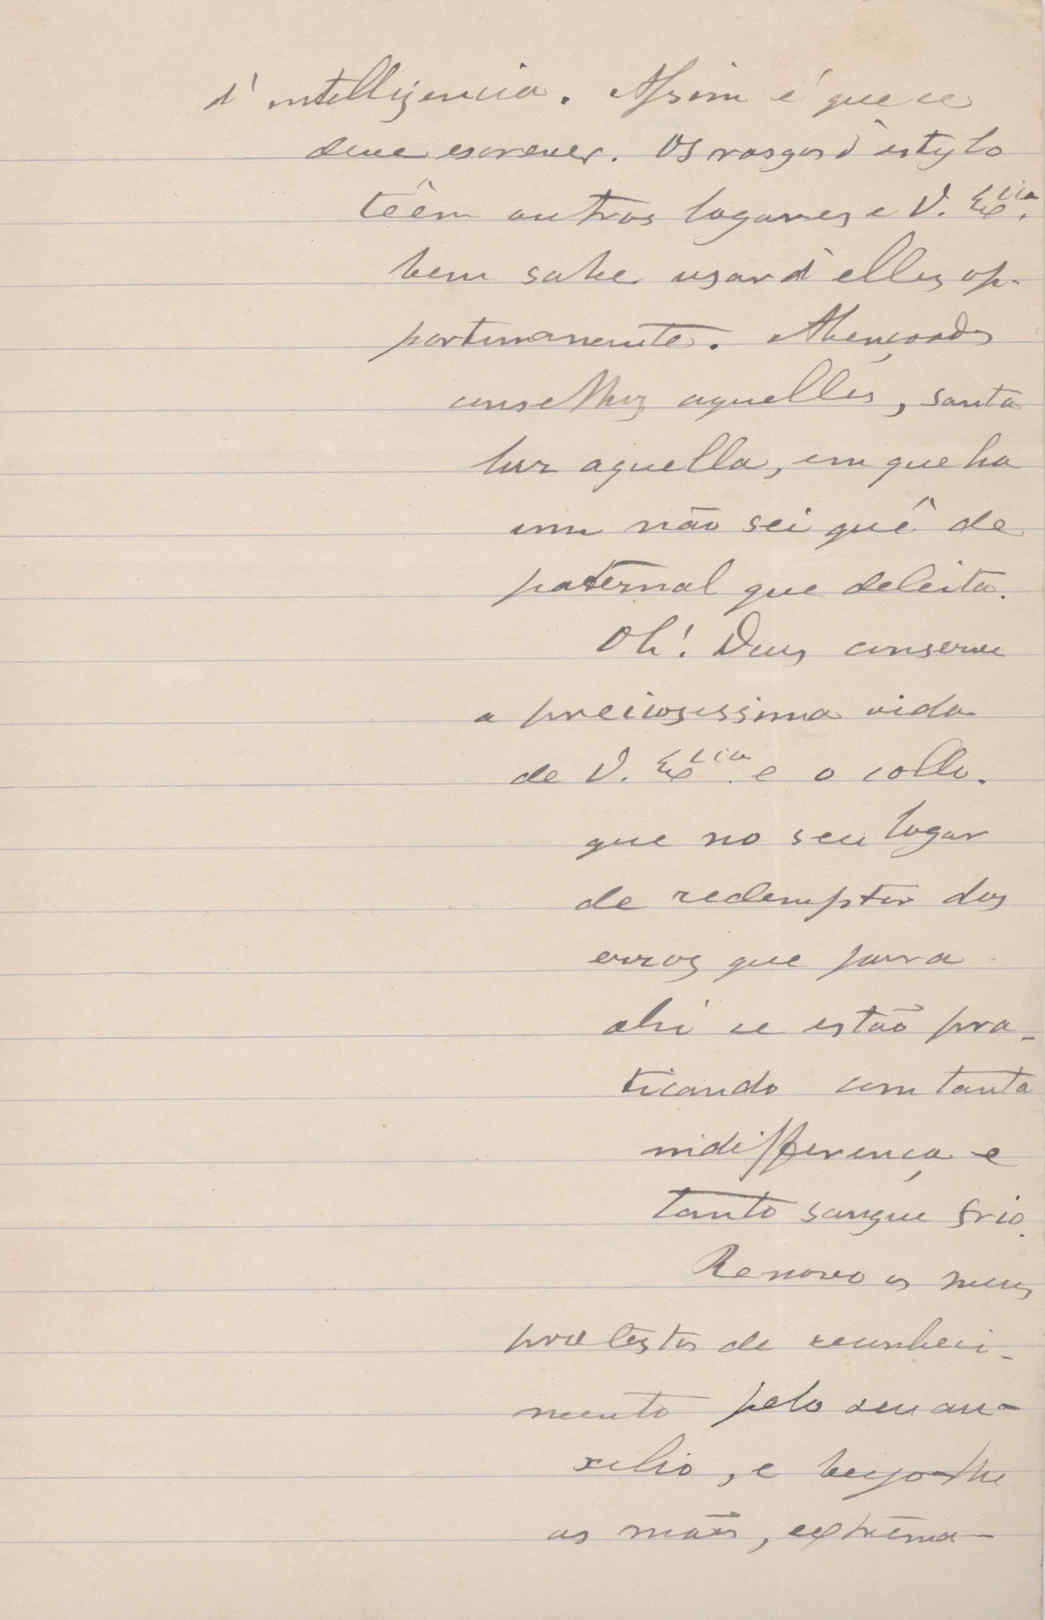 d'intelligencia. Assim é que se
deve escrever. Os rasgos d'estylo
têêm outros logares e V. Ex.cia
bem sabe usar d'elles op-
portunamente. Abençoados
conselhos aquelles, santa
luz aquella, em que ha
um não sei quê de
paternal que deleita.
Oh! Deus conserve
a preciosissima vida
de V. Ex.cia e o collo-
que no seu logar
de redemptor dos
erros que para
ahi se estão pra-
ticando com tanta
indifferença e
tanto sangue frio.
Renovo os meus
protestos de reconheci-
mento pelo seu au-
xilio, e beijo-lhe
as mãos, extrema-